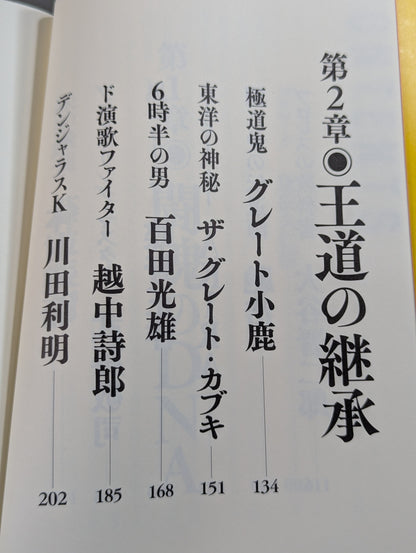 第2章◉王道の継承
極道鬼 グレート小鹿 134
東洋の神秘 ザ・グレート・カブキ 151
6時半の男 百田光雄 168
ド演歌ファイター 越中詩郎 185
デンジャラスK 川田利明 202